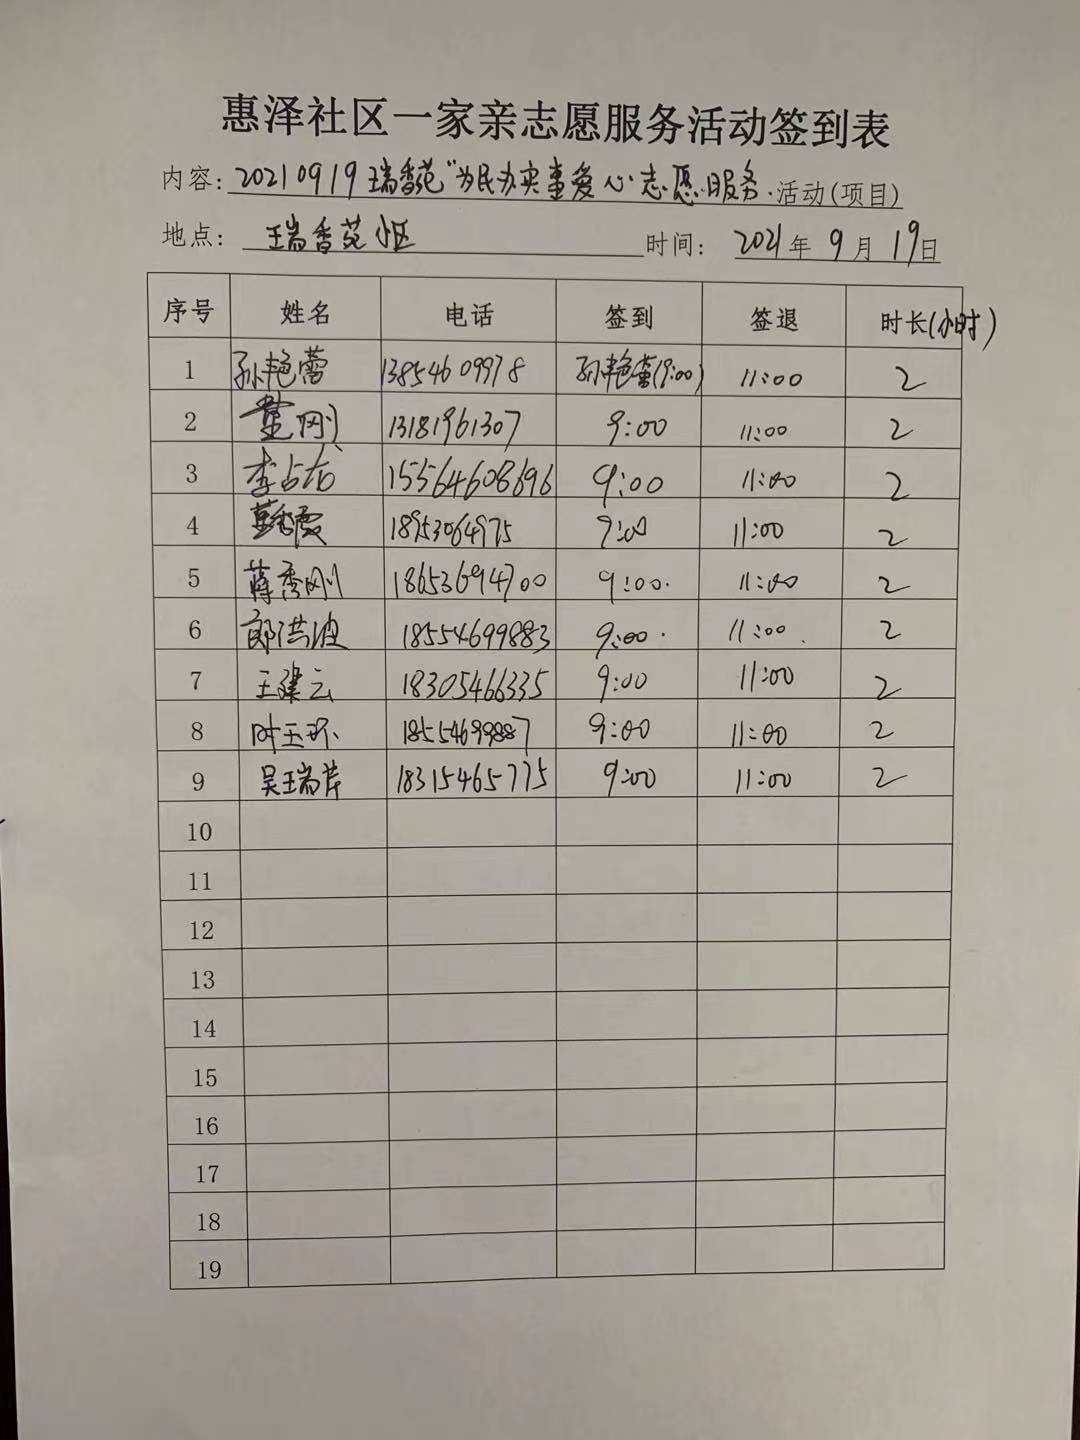 惠泽社区一家亲志愿服务活动签到表
内容: 20210919瑞香苑"为民办实事爱心志愿服务.活动(项目)
地点: 瑞香苑小区 时间: 2021年9月19日
序号 姓名 电话 签到 签退 时长(小时)
1 孙艳蕾 13854609978 孙艳蕾(9:00) 11:00 2
2 董刚 13181961307 9:00 11:00 2
3 李占友 15564608696 9:00 11:00 2
4 18953064975 9:00 11:00 2
5 蒋秀刚 18653694700 9:00. 11:00 2
6 郎洪波 18554699883 9:00. 11:00. 2
7 王建云 18305466335 9:00 11:00 2
8 时玉环 18554699887 9:00 11:00 2
9 吴瑞芹 18315465775 9:00 11:00 2
10
11
12
13
14
15
16
17
18
19